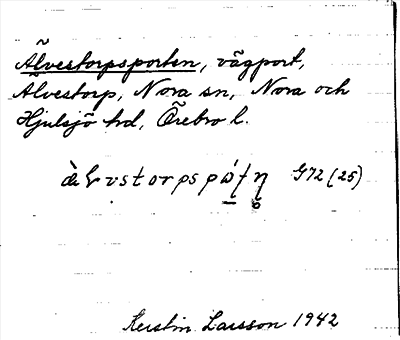 Älvestorpsporten, vägport,
Älvestorp, Nora sn, Nora och
Hjulsjö hd, Örebro l.
G72 (25)
Kerstin Larsson 1942